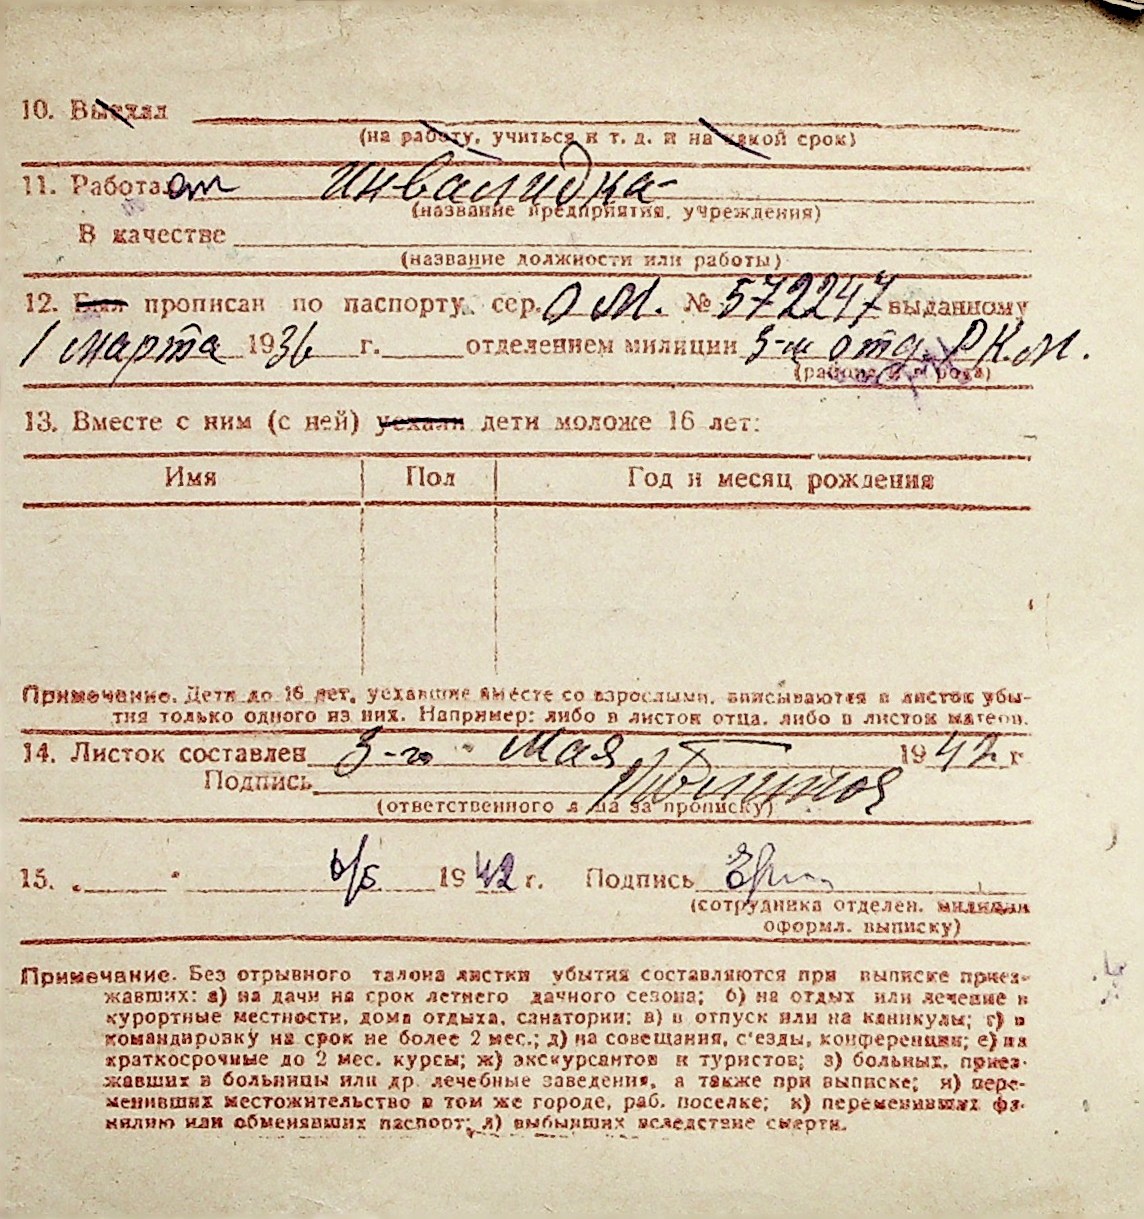 10. Выехал
(на работу, учиться и т. д. и на какой срок)
11. Работает инвалидка
(название предприятия, учреждения)
В качестве
(название должности или работы)
12. Был прописан по паспорту сер. О М. № 572247 выданному
1 марта 1936 г. отделением милиции 3-м отд. Р.К.М.
(района и города)
13. Вместе с ним (с ней) уехали дети моложе 16 лет:
Имя Пол Год и месяц рождения
Примечание. Дети до 16 лет, уехавшие вместе со взрослыми, вписываются в листок убы-
тия только одного из них. Например: либо в листок отца, либо в листок матери.
14. Листок составлен 3-го Мая 1942 г
Подпись
(ответственного лица за прописку)
15. „ “ 6/5 1942 г. Подпись
(сотрудника отделен. милиции
оформл. выписку)
Примечание. Без отрывного талона листки убытия составляются при выписке приез-
жавших: а) на дачи на срок летнего дачного сезона; б) на отдых или лечение в
курортные местности, дома отдыха, санатории; в) в отпуск или на каникулы; г) в
командировку на срок не более 2 мес.; д) на совещания, с'езды, конференции; е) на
краткосрочные до 2 мес. курсы; ж) экскурсантов и туристов; з) больных, приез-
жавших в больницы или др. лечебные заведения, а также при выписке; и) пере-
менивших местожительство в том же городе, раб. поселке; к) переменивших фа-
милию или обменявших паспорт; л) выбывших вследствие смерти.